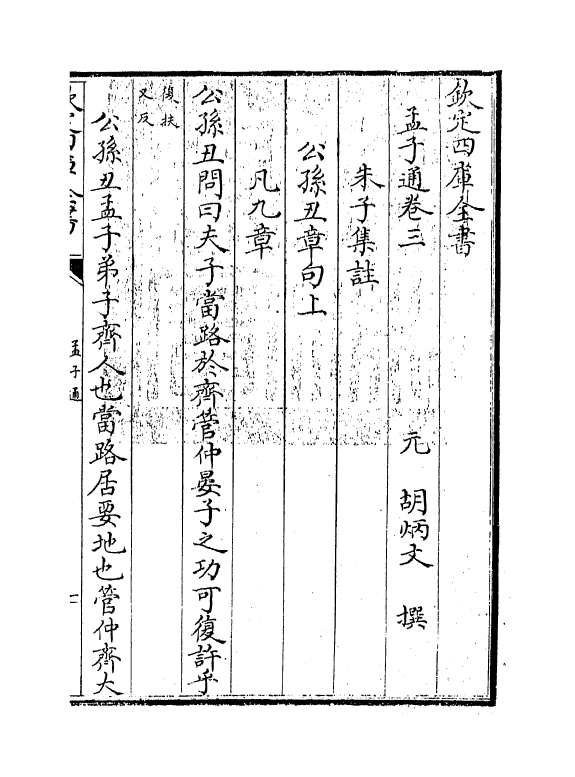 欽定四庫全書
孟子通卷三
元　胡炳文　撰
朱子集註
公孫丑章句上
凡九章
公孫丑問曰夫子當路於齊管仲晏子之功可復許乎
復扶
又反
公孫丑孟子弟子齊人也當路居要地也管仲齊大
孟子通
一